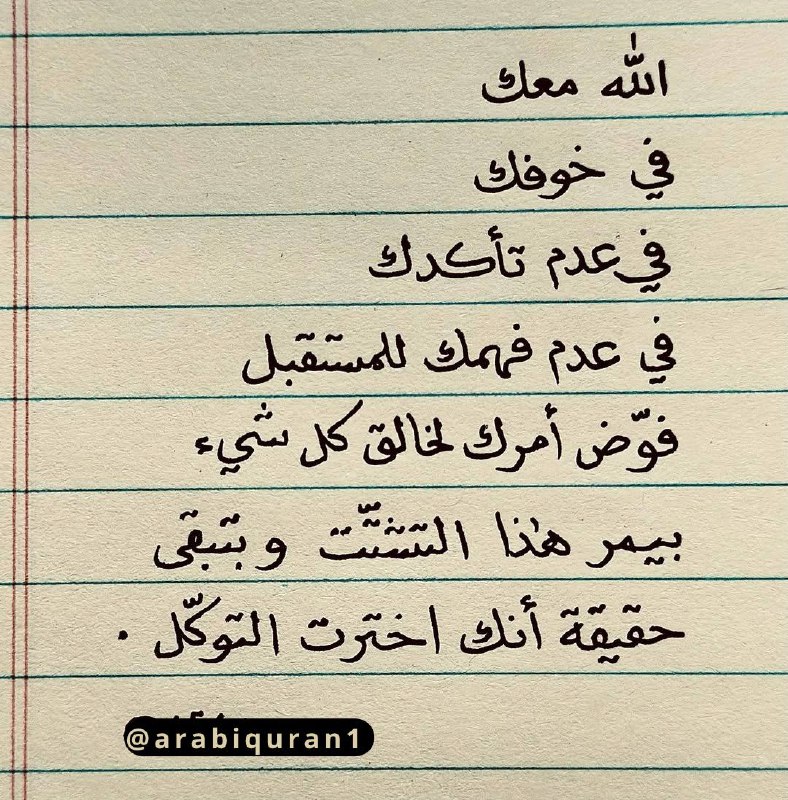 الله معك
في خوفك
في عدم تأكدك
في عدم فهمك للمستقبل
فوّض أمرك لخالق كل شيء
بيمر هٰذا التشتّت و بتبقى
حقيقة أنك اخترت التوكّل .
@arabiquran1